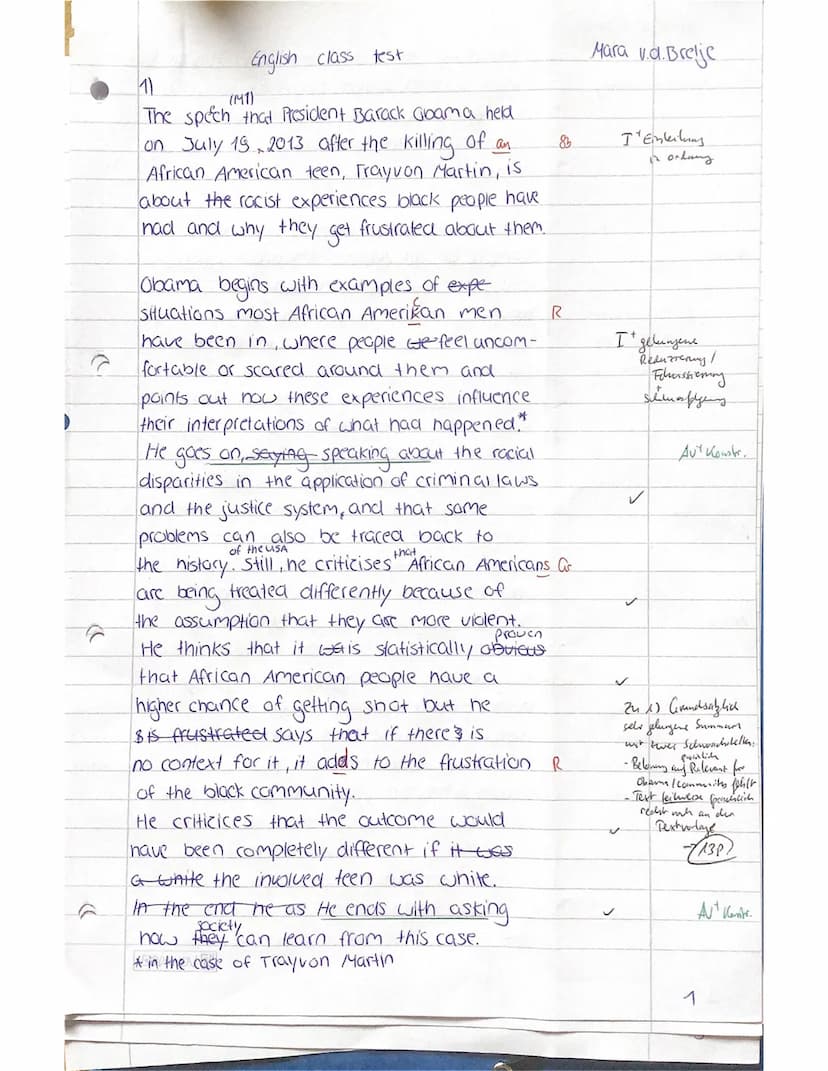 English class test
Mara v.d.Bretje
1)
(M1)
The speech that President Barack Obama held
on July 19, 2013 after the killing of an
African American teen, Trayvon Martin, is
about the racist experiences black people have
had and why they get frustrated about them.
I+ Einleitung
in ordnung
Obama begins with examples of expe
situations most African Amerikcan men R
have been in, where people we feel uncom-
fortable or scared around them and
points out how these experiences influence
their interpretations of what had happened.*
I+ gelungene
Reduzierung /
Fokussierung
He goes on, saying speaking about the racial
Av+ Konstr.
disparities in the application of criminal laws
and the justice system, and that some
problems can also be traced back to
of the USA that
the history. Still, he criticises African Americans Gr
are being treated differently because of
the assumption that they are more violent.
proven
He thinks that it was is statistically obvious
that African American people have a
higher chance of getting shot but he
s is frustrated says that if there's is
no context for it, it adds to the frustration R
of the black community.
zu 1) Grundsätzlich
sehr gelungene Summary
mit zwei Schwachstellen:
- Belonung auf Relevanz für
Obama/Community fehlt
- Text teilweise sprachlich
recht nah an der
Textvorlage
→ 13P
He criticices that the outcome would
have been completely different if it was
a white the involved teen was white.
In the end he as He ends with asking
Av+ Konstr.
society
how they can learn from this case.
* in the case of Trayvon Martin
1